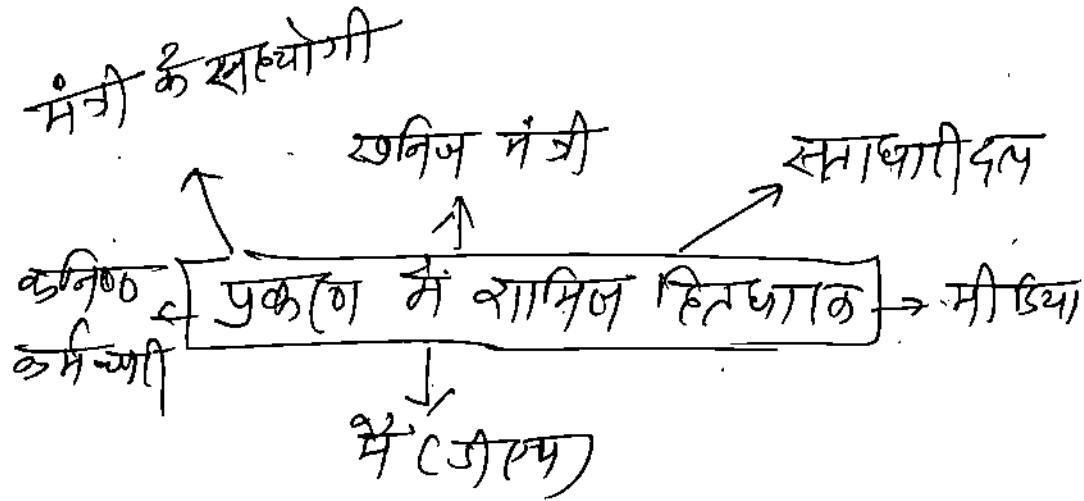 मंत्री के सहयोगी
खनिज मंत्री
सत्ताधारी दल
कनिष्ठ
कर्मचारी
प्रकरण में शामिल हितधारक
मीडिया
मैं (डीएम)